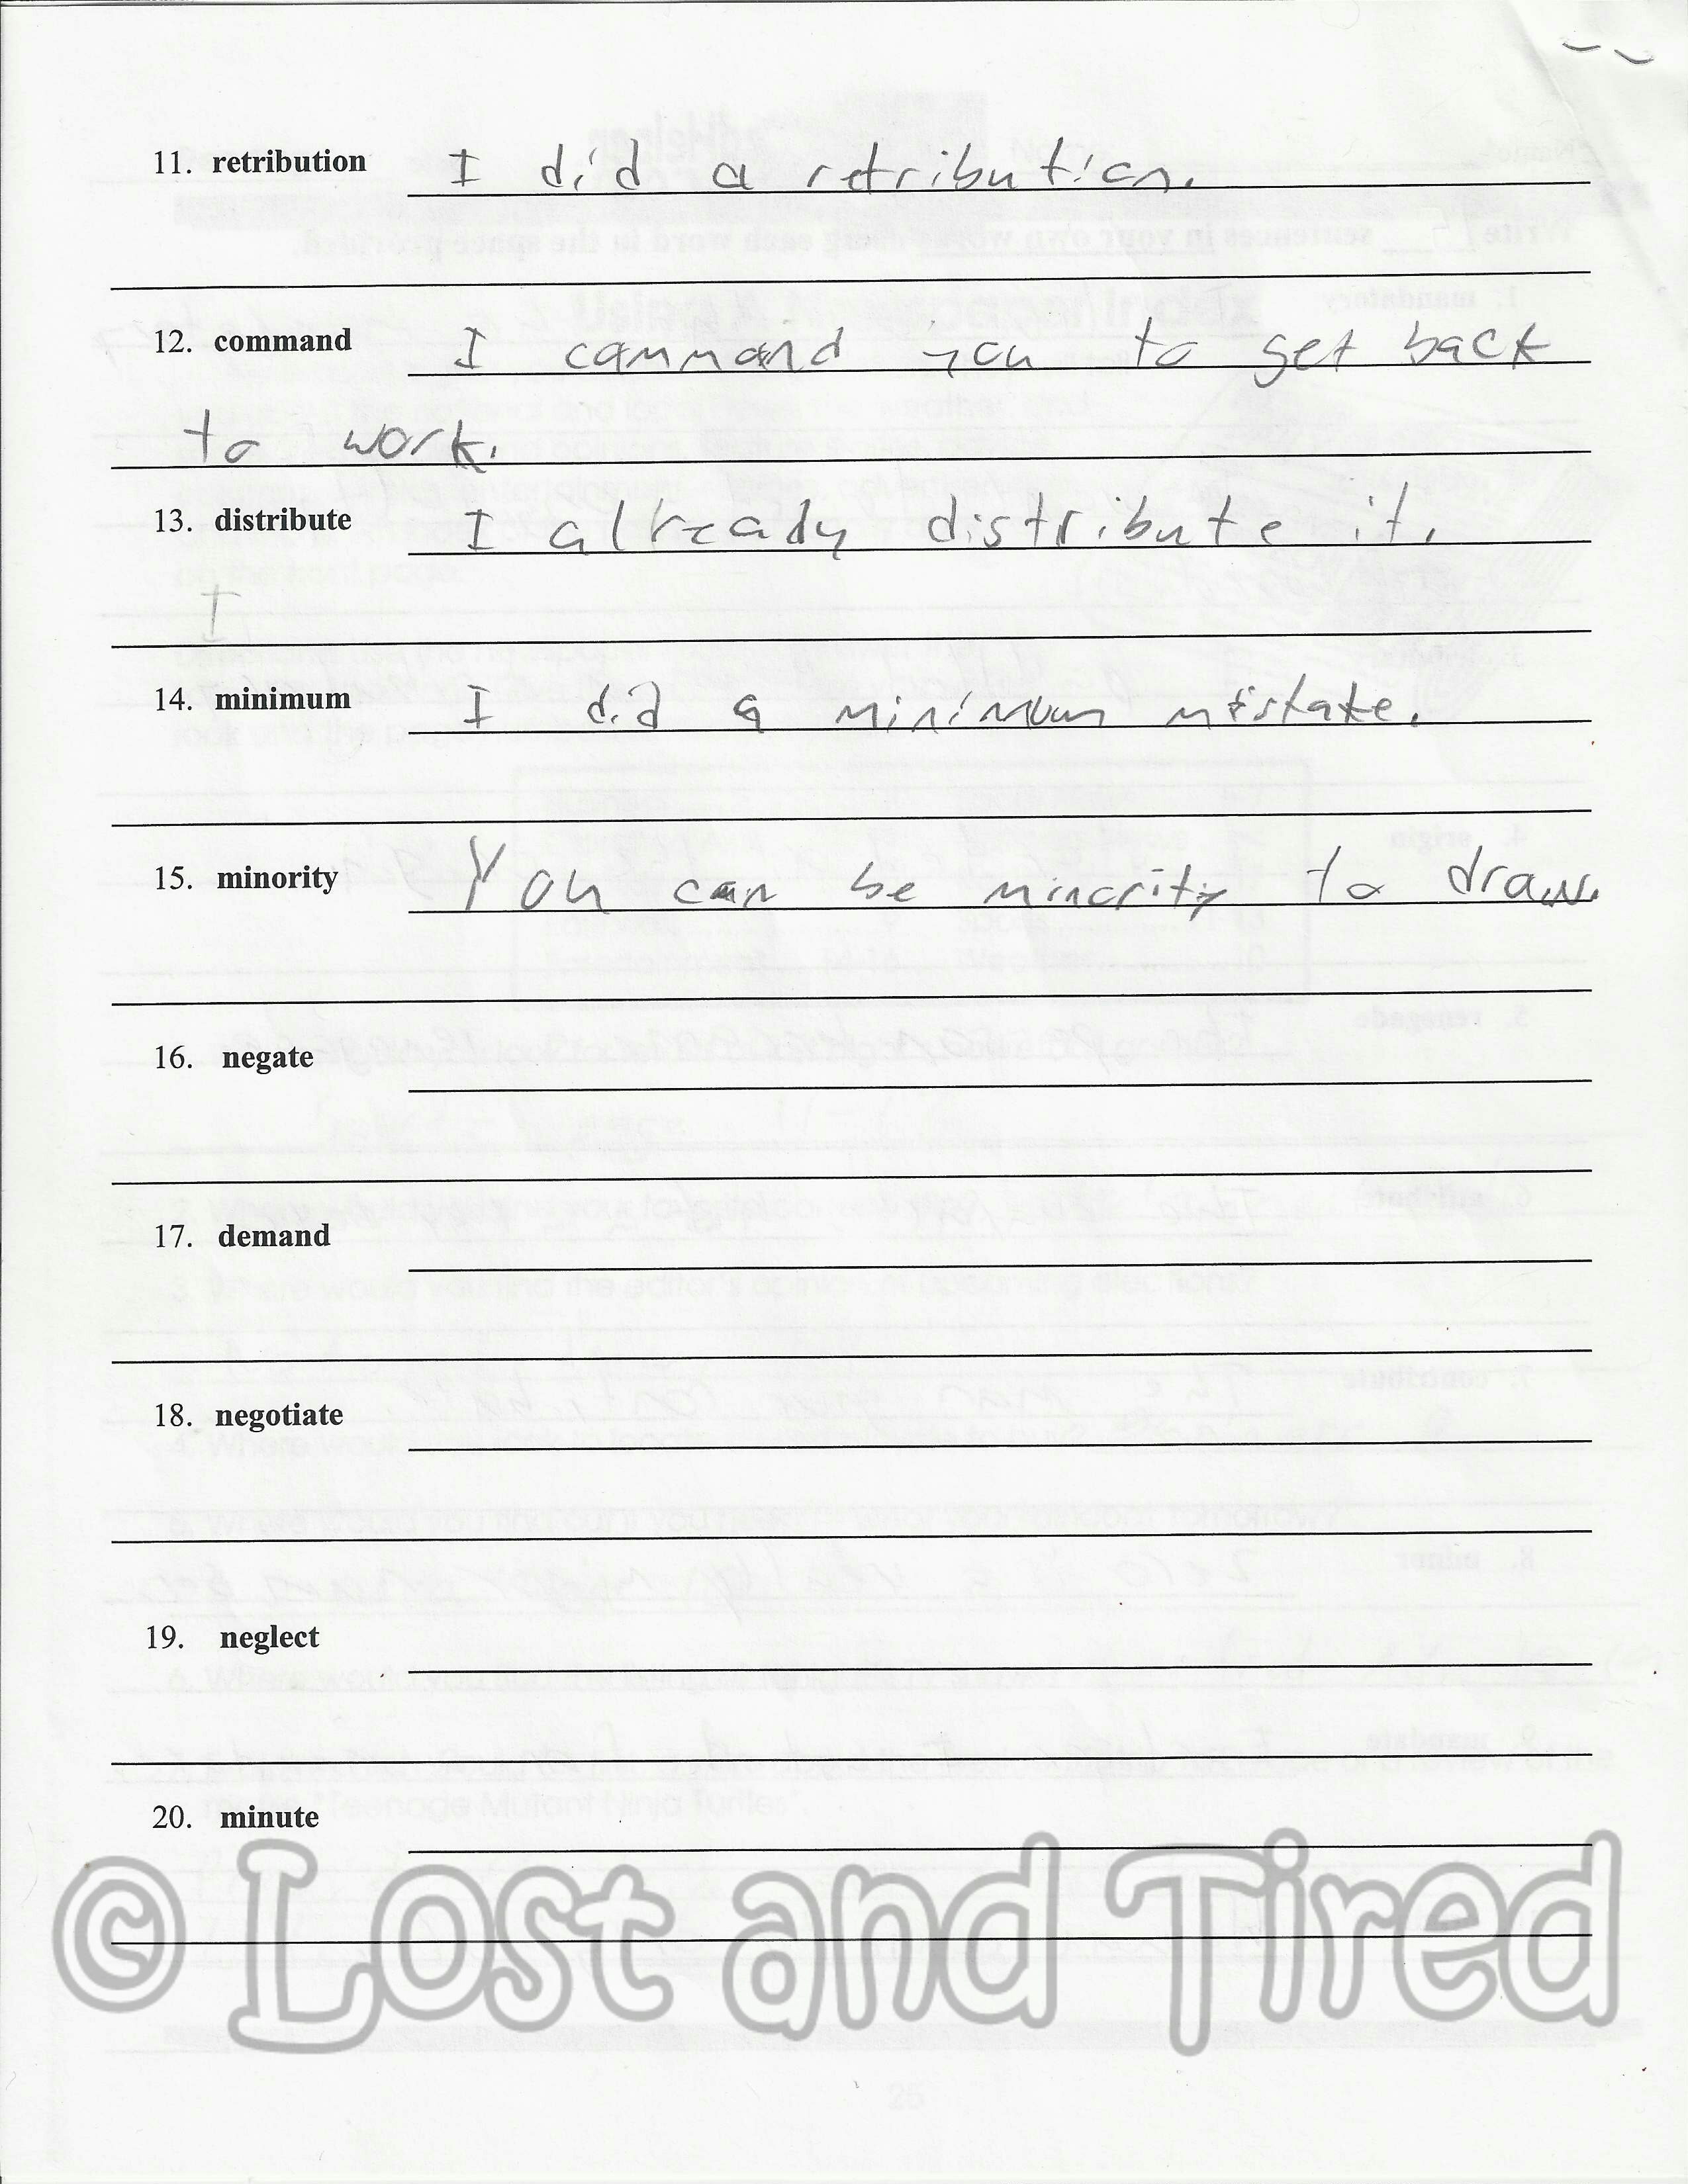 11. retribution I did a retribution.
12. command I command you to get back
to work.
13. distribute I already distribute it.
I
14. minimum I did a minimum mistake.
15. minority You can be minority to draw.
16. negate
17. demand
18. negotiate
19. neglect
20. minute
© Lost and Tired